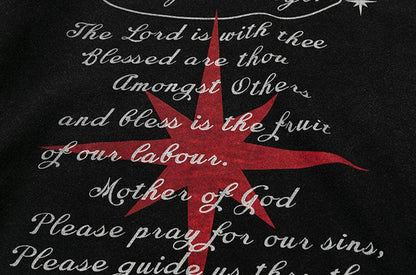 The Lord is with thee
Blessed are thou
Amongst Others
and bless is the fruit
of our labour.
Mother of God
Please pray for our sins,
Please guide us